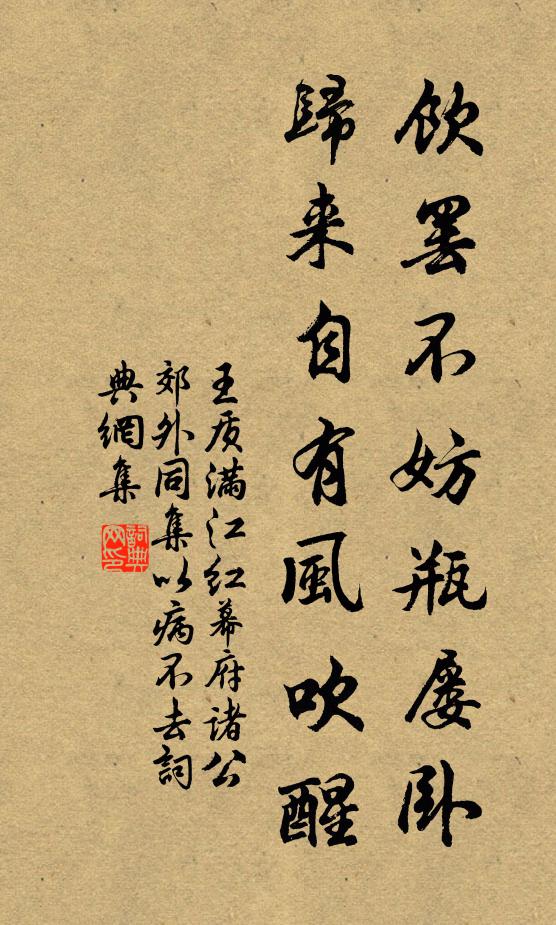 飲罷不妨瓶屢臥
歸来自有風吹醒
王质滿江紅幕府諸公
郊外同集以病不去詞
典網集
詞典网印